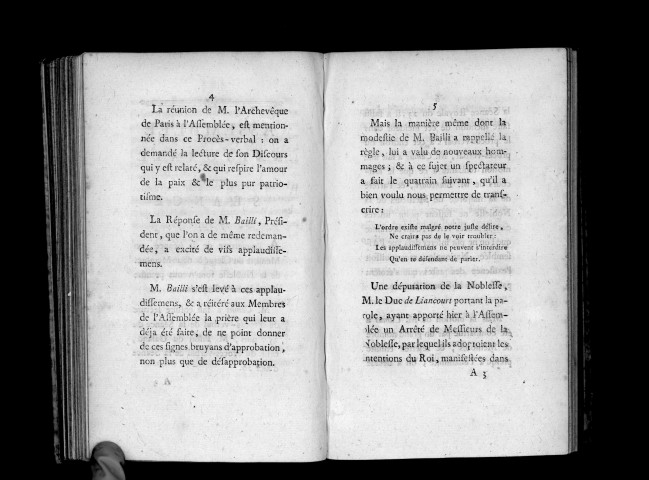 4
La réunion de M. l'Archevêque
de Paris à l'Assemblée, est mention-
née dans ce Procès-verbal : on a
demandé la lecture de son Discours
qui y est relaté, & qui respire l'amour
de la paix & le plus pur patrio-
tisme.
La Réponse de M. Bailli, Prési-
dent, que l'on a de même redeman-
dée, a excité de vifs applaudisse-
mens.
M. Bailli s'est levé à ces applau-
dissemens, & a réitéré aux Membres
de l'Assemblée la prière qui leur a
déja été faite, de ne point donner
de ces signes bruyans d'approbation,
non plus que de désapprobation.
5
Mais la manière même dont la
modestie de M. Bailli a rappellé la
règle, lui a valu de nouveaux hom-
mages ; & à ce sujet un spectateur
a fait le quatrain suivant, qu'il a
bien voulu nous permettre de trans-
crire :
L'ordre existe malgré notre juste désire,
Ne crains pas de le voir troubler :
Les applaudissemens ne peuvent s'interdire
Qu'en te défendant de parler.
Une députation de la Noblesse,
M. le Duc de Liancourt portant la pa-
role, ayant apporté hier à l'Assem-
blée un Arrêté de Messieurs de la
Noblesse, par lequel ils adoptoient les
intentions du Roi, manifestées dans
A 3